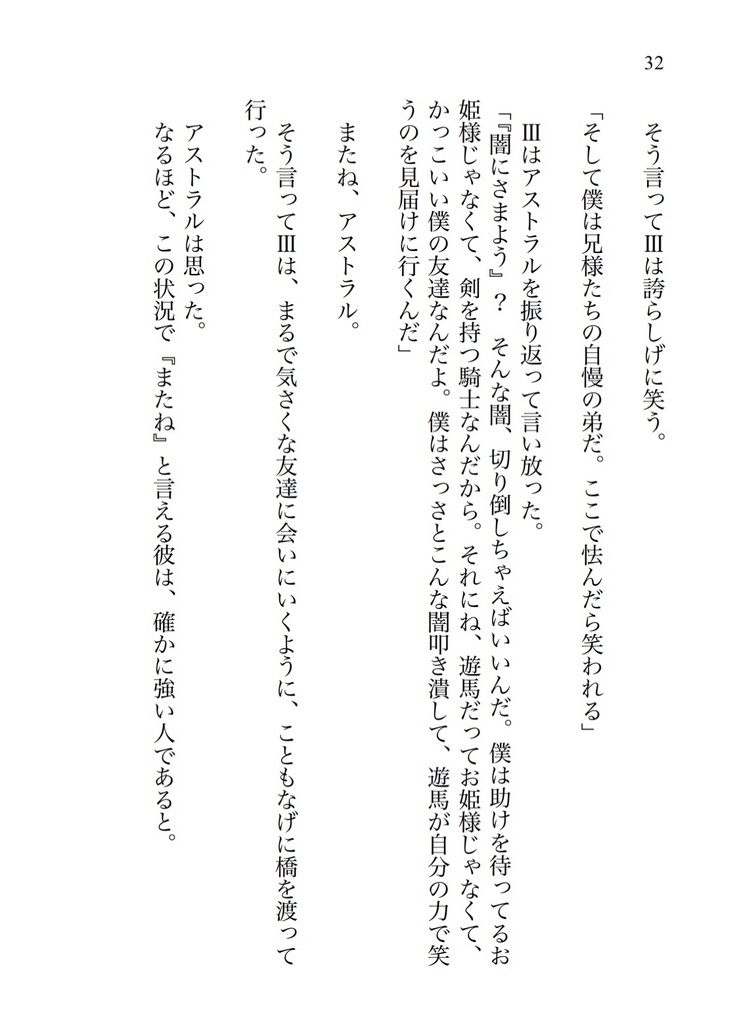 32
そう言ってⅢは誇らしげに笑う。
「そして僕は兄様たちの自慢の弟だ。ここで怯んだら笑われる」
Ⅲはアストラルを振り返って言い放った。
「『闇にさまよう』？　そんな闇、切り倒しちゃえばいいんだ。僕は助けを待ってるお
姫様じゃなくて、剣を持つ騎士なんだから。それにね、遊馬だってお姫様じゃなくて、
かっこいい僕の友達なんだよ。僕はさっさとこんな闇叩き潰して、遊馬が自分の力で笑
うのを見届けに行くんだ」
またね、アストラル。
そう言ってⅢは、まるで気さくな友達に会いにいくように、こともなげに橋を渡って
行った。
アストラルは思った。
なるほど、この状況で『またね』と言える彼は、確かに強い人であると。